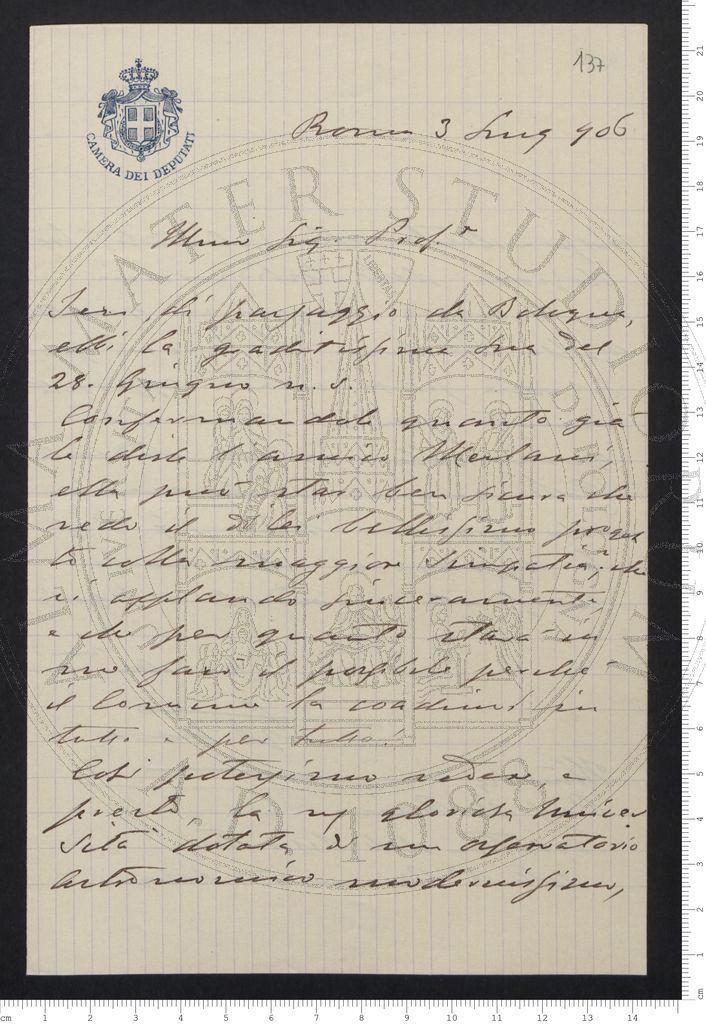 137
CAMERA DEI DEPUTATI
Roma 3 Lug 906
Illmo Sig. Prof.r
Ieri di passaggio da Bologna,
ebbi la graditissima sua del
28. Giugno u. s.
Confermandole quanto già
le disse l'amico Merlani,
ella può star ben sicura che
vedo il di lei bellissimo proget
to colla maggior simpatia, che
vi applaudo sinceramente
e che per quanto starà in
me farò il possibile perchè
il Comune la coadiuvi in
tutto e per tutto!
Così potessimo veder, e
presto, la ns gloriosa Univer
sità dotata di un osservatorio
astronomico modernissimo,